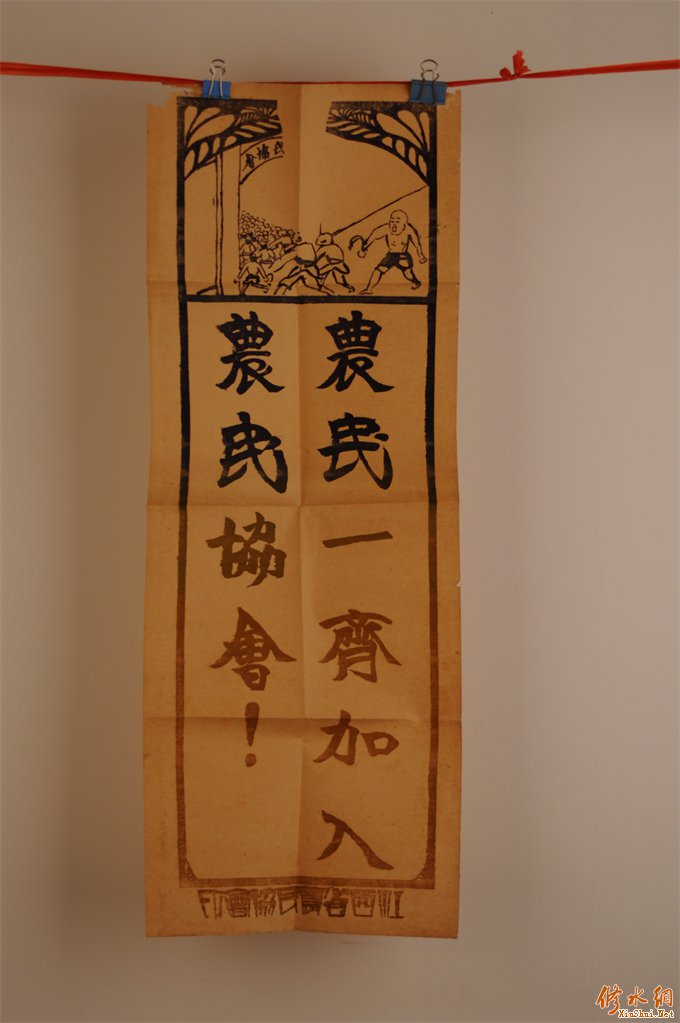 民協會
農民一齊加入
農民協會！
江西省農民協會印
修水網
XiuShui.Net